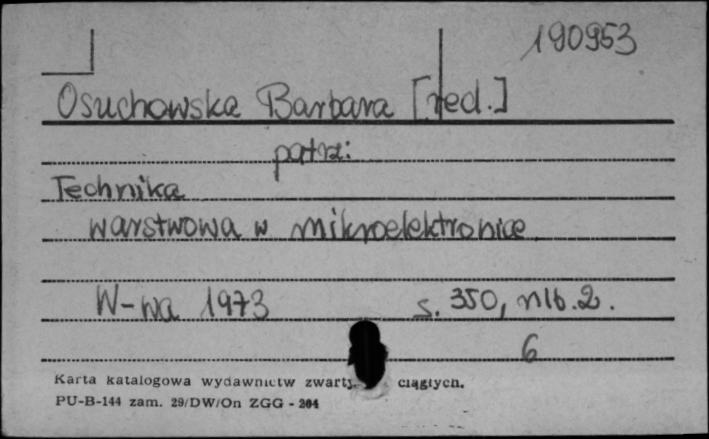 190953
Osuchowska Barbara [red.]
patrz:
Technika
warstwowa w mikroelektronice
W-wa 1973 s. 350, nlb. 2.
6
Karta katalogowa wydawnictw zwart ciągłych.
PU-B-144 zam. 29/DW/On ZGG - 204